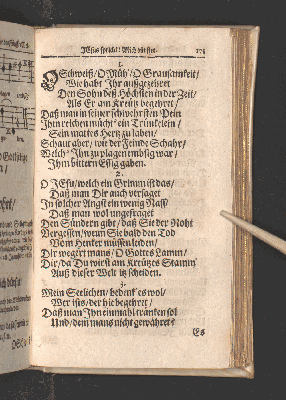 JEsus spricht: Mich dürstet. 175
1.
O Schweiß / O Müh / O Grausamkeit /
Wie habt Ihr außgezehret
Den Sohn deß Höchsten in der Zeit /
Als Er am Kreütz begehret /
Daß man in seiner schwehrsten Pein
Ihm reichen möcht' ein Tränkelein /
Sein mattes Hertz zu laben /
Schaut aber / wie der Feinde Schahr /
Welch' Ihn zu plagen embsig war /
Ihm bittern Essig gaben.
2.
O JEsu / welch ein Grimm ist das /
Daß man Dir auch versaget
In solcher Angst ein wenig Naß /
Daß man wol ungefraget
Den Sündern gibt / daß Sie der Noht
Vergessen / wenn Sie bald den Tod
Vom Henker müssen leiden /
Dir wegert mans / O Gottes Lamm /
Dir / da Du wirst am Kreützes Stamm
Auß dieser Welt itz scheiden.
3.
Mein Seelichen / bedenk' es wol /
Wer ists / der hie begehret /
Daß man Ihn einmahl tränken sol
Und / dem mans nicht gewähret?
Es